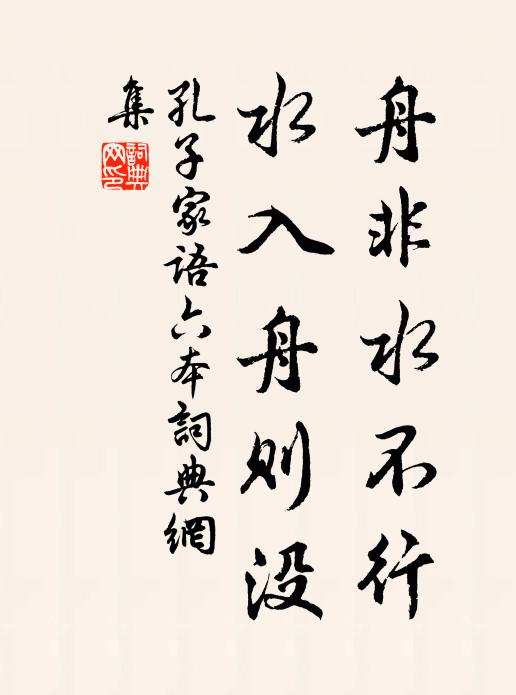 舟非水不行
水入舟则没
孔子家语六本詞典網
集
詞典网印